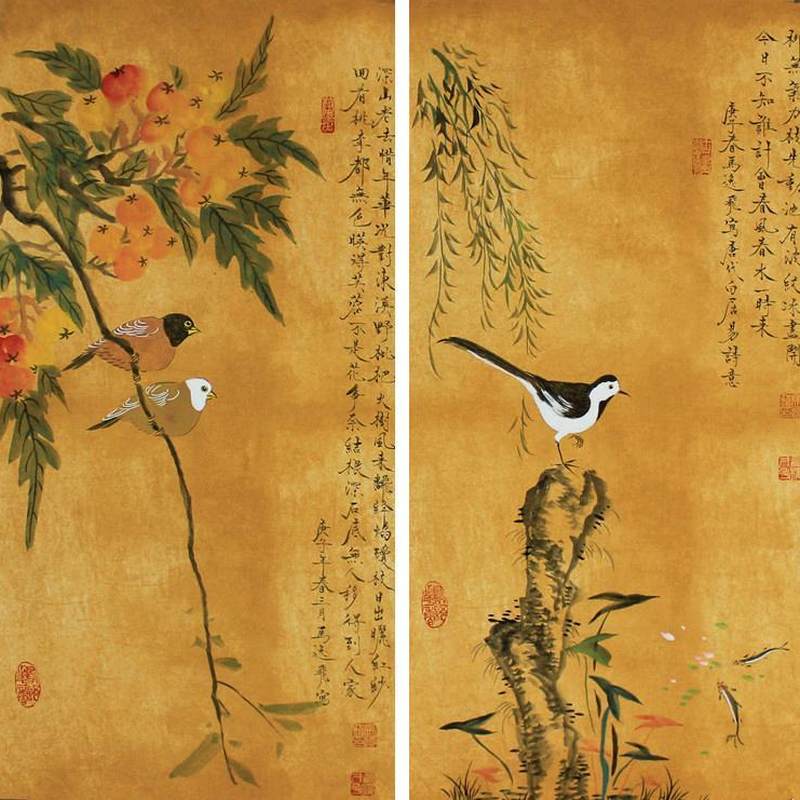 深山老去惜年華況對東溪野枇杷火樹風來飜絳焰瓊枝日出曬紅紗
回看桃李都無色映得芙蓉不是花爭奈結根深石底無人移得到人家
庚子年春三月馬逸飛寫
柳無氣力枝先動池有波紋冰盡開
今日不知誰計會春風春水一時來
庚子春馬逸飛寫唐代白居易詩意